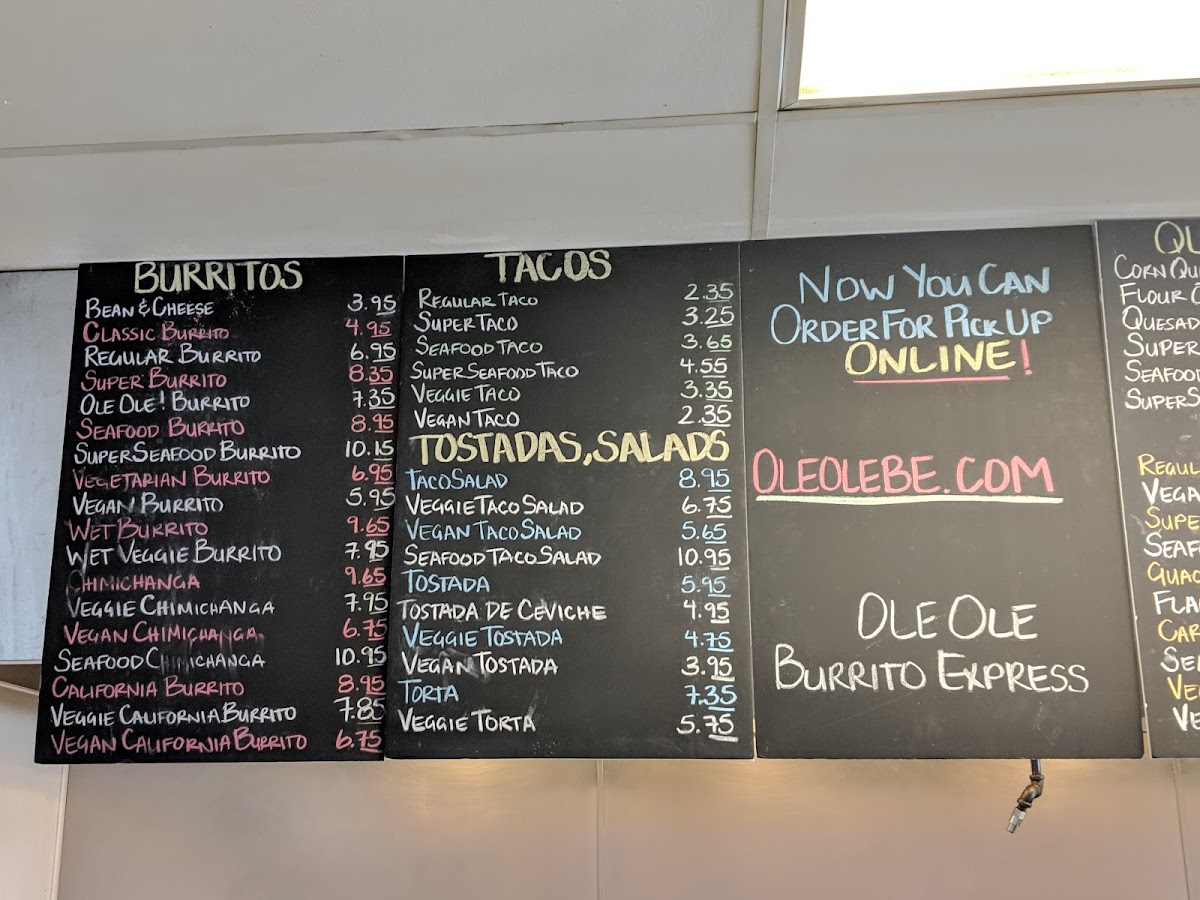 BURRITOS
BEAN & CHEESE 3.95
CLASSIC BURRITO 4.95
REGULAR BURRITO 6.95
SUPER BURRITO 8.35
OLE OLE! BURRITO 7.35
SEAFOOD BURRITO 8.95
SUPER SEAFOOD BURRITO 10.15
VEGETARIAN BURRITO 6.95
VEGAN BURRITO 5.95
WET BURRITO 9.65
WET VEGGIE BURRITO 7.95
CHIMICHANGA 9.65
VEGGIE CHIMICHANGA 7.95
VEGAN CHIMICHANGA 6.75
SEAFOOD CHIMICHANGA 10.95
CALIFORNIA BURRITO 8.95
VEGGIE CALIFORNIA BURRITO 7.85
VEGAN CALIFORNIA BURRITO 6.75
TACOS
REGULAR TACO 2.35
SUPER TACO 3.25
SEAFOOD TACO 3.65
SUPER SEAFOOD TACO 4.55
VEGGIE TACO 3.35
VEGAN TACO 2.35
TOSTADAS, SALADS
TACO SALAD 8.95
VEGGIE TACO SALAD 6.75
VEGAN TACO SALAD 5.65
SEAFOOD TACO SALAD 10.95
TOSTADA 5.95
TOSTADA DE CEVICHE 4.95
VEGGIE TOSTADA 4.75
VEGAN TOSTADA 3.95
TORTA 7.35
VEGGIE TORTA 5.75
NOW YOU CAN
ORDER FOR PICK UP
ONLINE!
OLEOLEBE.COM
OLE OLE
BURRITO EXPRESS
QU
CORN QU
FLOUR
QUESAD
SUPER
SEAFOOD
SUPER S
REGUL
VEGA
SUPE
SEAF
GUAC
FLA
CAR
SE
VE
VE